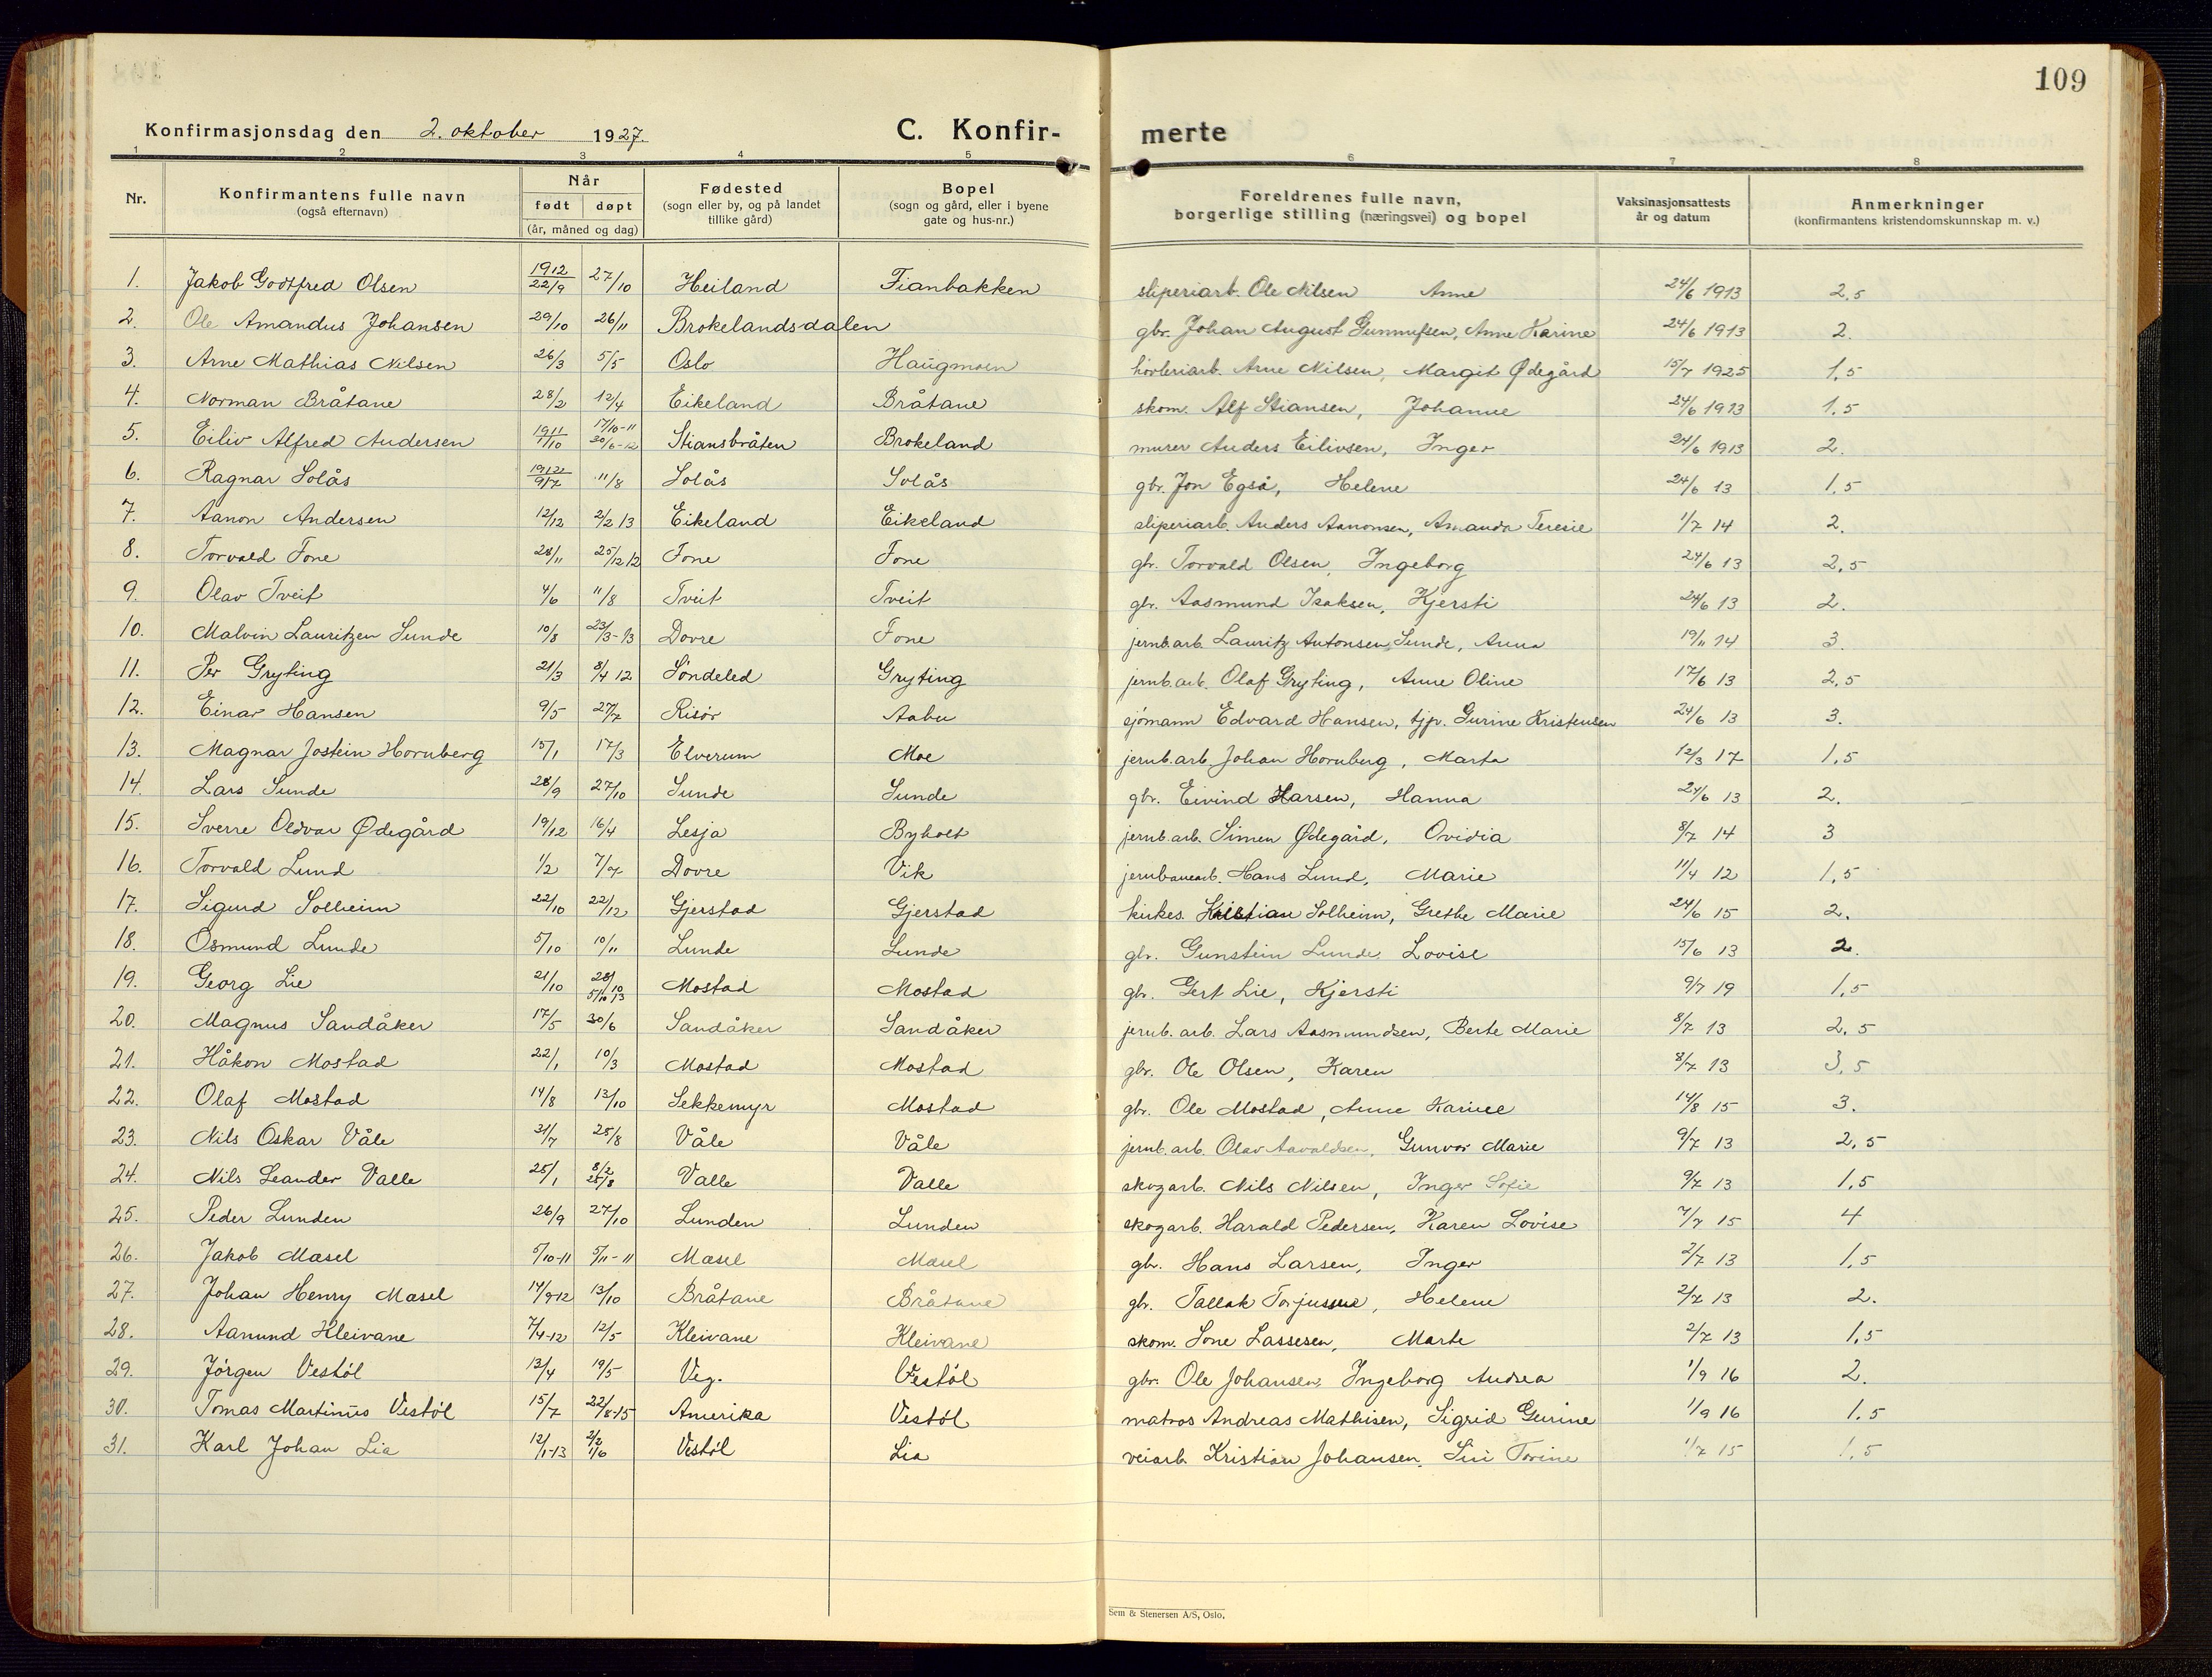 109
Konfirmasjonsdag den 2. oktober 1927. C. Konfirmerte
1 2 3 4 5 6 7 8
Nr. Konfirmantens fulle navn (også efternavn) Når født døpt (år, måned og dag) Fødested (sogn eller by, og på landet tillike gård) Bopel (sogn og gård, eller i byene gate og hus-nr.) Foreldrenes fulle navn, borgerlige stilling (næringsvei) og bopel Vaksinasjonsattests år og datum Anmerkninger (konfirmantens kristendomskunnskap m. v.)
1. Jakob Godtfred Olsen 1912 22/9 27/10 Heiland Fianbakken sliperiarb. Ole Nilsen Anne 24/6 1913 2.5
2. Ole Amandus Johansen 29/10 26/11 Brokelandsdalen gbr. Johan August Gunnufsen, Anne Karine 24/6 1913 2.
3. Arne Mathias Nilsen 26/3 5/5 Oslo Haugmoen høvleriarb. Arne Nilsen, Margit Ødegård 15/7 1925 1,5
4. Norman Bråtane 28/2 12/4 Eikeland Bråtane skom. Alf Stiansen, Johanne 24/6 1913 1.5
5. Eiliv Alfred Andersen 1911 7/10 17/10-11 30/6-12 Stiansbråten Brokeland murer Anders Eilivsen, Inger 24/6 1913 2.
6. Ragnar Solås 1912 9/7 11/8 Solås Solås gbr. Jon Egså, Helene 24/6 13 1,5
7. Aanon Andersen 12/12 2/2 13 Eikeland Eikeland sliperiarb. Anders Aanonsen, Amanda Teresie 1/7 14 2.
8. Torvald Fone 28/11 25/12 12 Fone Fone gbr. Torvald Olsen, Ingeborg 24/6 13 2,5
9. Olav Tveit 4/6 11/8 Tveit Tveit gbr. Aasmund Isaksen, Kjersti 24/6 13 2.
10. Malvin Lauritzen Sunde 10/8 23/3-13 Dovre Fone jernb.arb. Lauritz Antonsen Sunde, Anna 19/11 14 3.
11. Per Gryting 21/3 8/4 12 Søndeled Gryting jernb.arb. Olaf Gryting, Anne Oline 17/6 13 2,5
12. Einar Hansen 9/5 27/7 Risør Aabu sjømann Edvard Hansen, tjp. Gurine Kristensen 24/6 13 3.
13. Magnar Jostein Hornberg 15/1 17/3 Elverum Moe jernb.arb. Johan Hornberg, Marta 12/3 17 1,5
14. Lars Sunde 28/9 27/10 Sunde Sunde gbr. Eivind Larsen, Hanna 24/6 13 2.
15. Sverre Oldvar Ødegård 19/12 16/4 Lesja Byholt jernb.arb. Simen Ødegård, Ovidia 8/7 14 3
16. Torvald Lund 1/2 7/7 Dovre Vik jernbanearb. Hans Lund, Marie 11/4 12 1,5
17. Sigurd Solheim 22/10 22/12 Gjerstad Gjerstad kirkes. Kristian Solheim, Grethe Marie 24/6 15 2.
18. Osmund Lunde 5/10 10/11 Lunde Lunde gbr. Gunstein Lunde, Lovise 15/6 13 2.
19. Georg Lie 21/10 28/10 5/10 13 Mostad Mostad gbr. Gert Lie, Kjersti 9/7 19 1,5
20. Magnus Sandåker 17/5 30/6 Sandåker Sandåker jernb. arb. Lars Aasmundsen, Berte Marie 8/7 13 2,5
21. Håkon Mostad 22/1 10/3 Mostad Mostad gbr. Ole Olsen, Karen 8/7 13 3,5
22. Olaf Mostad 14/8 13/10 Sekkemyr Mostad gbr. Ole Mostad, Anne Karine 14/8 15 3.
23. Nils Oskar Våle 31/7 25/8 Våle Våle jernb.arb. Olav Aavaldsen, Gunvor Marie 9/7 13 2,5
24. Nils Leander Valle 25/1 8/2 25/8 Valle Valle skogarb. Nils Nilsen, Inger Sofie 9/7 13 1,5
25. Peder Lunden 26/9 27/10 Lunden Lunden skogarb. Harald Pedersen, Karen Lovise 7/7 15 4
26. Jakob Masel 5/10-11 5/11-11 Masel Masel gbr. Hans Larsen, Inger 2/7 13 1,5
27. Johan Henry Masel 14/9-12 13/10 Bråtane Bråtane gbr. Tallak Torjussen, Helene 2/7 13 2.
28. Aanund Kleivane 7/4-12 12/5 Kleivane Kleivane skom. Lone Lassesen, Marte 2/7 13 1,5
29. Jørgen Vestøl 13/4 19/5 Veg. Vestøl gbr. Ole Johansen, Ingeborg Andrea 1/9 16 2.
30. Tomas Martinus Vestøl 15/7 22/8-15 Amerika Vestøl matros Andreas Mathisen, Sigrid Gurine 1/9 16 1.5
31. Karl Johan Lia 12/1-13 2/2 1/6 Vestøl Lia veiarb. Kristian Johansen, Siri Torine 1/7 15 1,5
Sem & Stenersen A/S, Oslo.